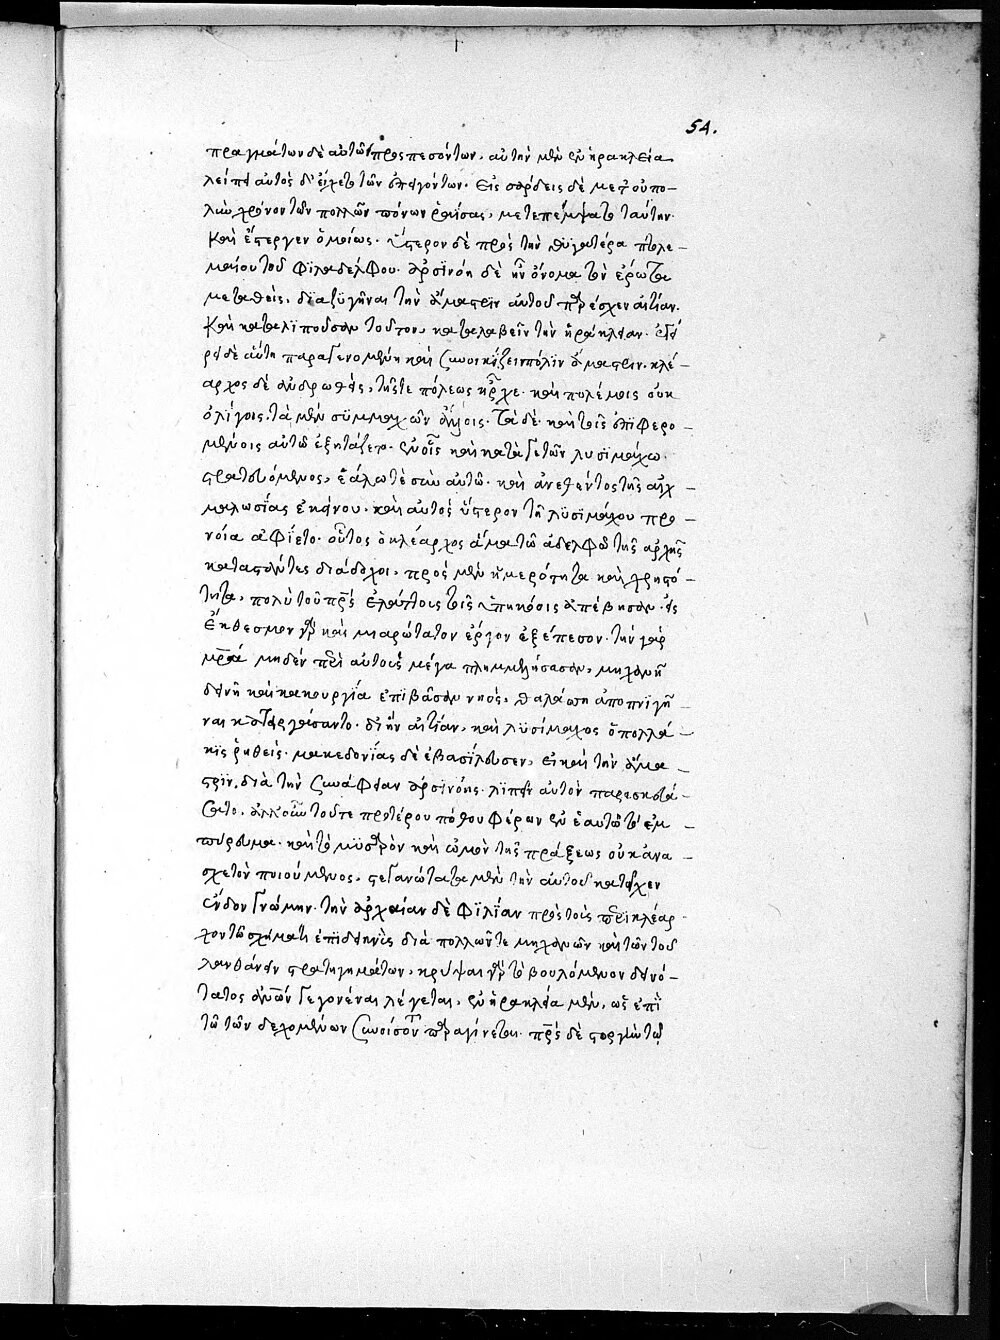 54.
πραγμάτων δὲ αὐτῶ προσπεσόντων, αὐτὴν μὲν ἐν ἡρακλεία
λείπει αὐτὸς δ' εἴχετο τῶν ἐπειγόντων. εἰς σάρδεις δὲ μετ' οὐ πο-
λὺν χρόνον τῶν πολλῶν πόνων ῥαΐσας, μετεπέμψατο ταύτην.
καὶ ἔστεργεν ὁμοίως. ὕστερον δὲ πρὸς τὴν θυγατέρα πτολε-
μαίου τοῦ φιλαδέλφου. ἀρσινόη δὲ ἦν ὄνομα τὸν ἔρωτα
μεταθεὶς, διαζυγῆναι τὴν ἄμαστριν αὐτοῦ παρέσχεν αἰτίαν.
καὶ καταλιποῦσαν τοῦτον, καταλαβεῖν τὴν ἡράκλειαν. ἐγεί-
ρει δὲ αὕτη παραγενομένη καὶ συνοικίζει πόλιν ἄμαστριν. κλέ-
αρχος δὲ ἀνδρωθεὶς, τῆς τε πόλεως ἦρχε. καὶ πολέμοις οὐκ
ὀλίγοις, τὰ μὲν συμμαχῶν ἄλλοις. τὰ δὲ καὶ τοῖς ἐπιφερο-
μένοις αὐτῶ ἐξητάζετο. ἐν οἷς καὶ κατὰ γετῶν λυσιμάχω
στρατευόμενος, ἑάλω τε σὺν αὐτῶ. καὶ ἀνεθέντος τῆς αἰχ-
μαλωσίας ἐκείνου. καὶ αὐτὸς ὕστερον τῆ λυσιμάχου προ-
νοία ἀφίετο. οὗτος ὁ κλέαρχος ἅμα τῶ ἀδελφῶ τῆς ἀρχῆς
καταστάντες διάδοχοι, πρὸς μὲν ἡμερότητα καὶ χρηστό-
τητα, πολὺ τοῦ πατρὸς ἐλάττους τοῖς ὑπηκόοις ἀπέβησαν. εἰς
ἔκθεσμον γὰρ καὶ μιαρώτατον ἔργον ἐξέπεσον. τὴν γὰρ
μητέρα μηδὲν περὶ αὐτοὺς μέγα πλημμελήσασαν, μηχανῆ
δεινῆ καὶ κακουργία ἐπιβᾶσαν νηὸς, θαλάσση ἀποπνιγῆ-
ναι κατειργάσαντο. δι' ἣν αἰτίαν, καὶ λυσίμαχος ὁ πολλά-
κις ῥηθεὶς. μακεδονίας δὲ ἐβασίλευσεν, εἰ καὶ τὴν ἄμα-
στριν, διὰ τὴν συνάφειαν ἀρσινόης λιπεῖν αὐτὸν παρεσκευά-
σατο, ἀλλ' οὖν τοῦ τε προτέρου πόθου φέρων ἐν ἑαυτῶ τὸ ἐμ-
πύρευμα. καὶ τὸ μυσαρὸν καὶ ὠμὸν τῆς πράξεως οὐκ ἀνα-
σχετὸν ποιούμενος, στεγανώτατα μὲν τὴν αὐτοῦ κατεῖχεν
ἔνδον γνώμην. τὴν ἀρχαίαν δὲ φιλίαν πρὸς τοὺς περὶ κλέαρ-
χον τῶ σχήματι ἐπιδεικνὺς διὰ πολλῶν τε μηχανῶν καὶ τῶν τοῦ
λανθάνειν στρατηγημάτων, κρύψαι γὰρ τὸ βουλόμενον δεινό-
τατος ἀνθρώπων γεγονέναι λέγεται, ἐν ἡρακλεία μὲν, ὡς ἐπὶ
τῶ τῶν δεχομένων συνοίσοντι παραγίνεται. πατρὸς δὲ στοργὴν τῶ